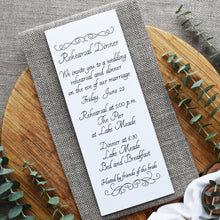 Rehearsal Dinner
We invite you to a wedding
rehearsal and dinner
on the eve of our marriage
Friday, June 22
Rehearsal at 5:00 p.m.
The Pier
at Lake Meade
Dinner at 6:30
Lake Meade
Bed and Breakfast
Hosted by friends of the bride